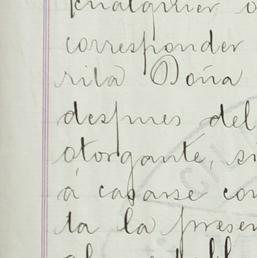 cualquier o
corresponder
rita Doña
despues del
otorgante, si
á casarse con
ta la presen